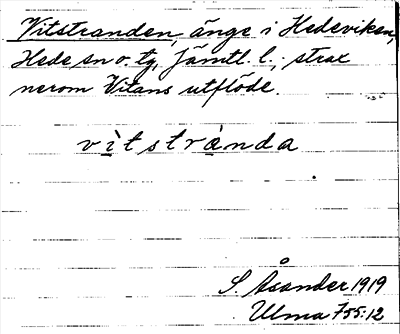 Vitstranden, änge i Hedeviken,
Hede sn o. tg, Jämtl. l., strax
nerom Vitans utflöde.
vìtstrànda
S. Åsander 1919
Ulma 755:12